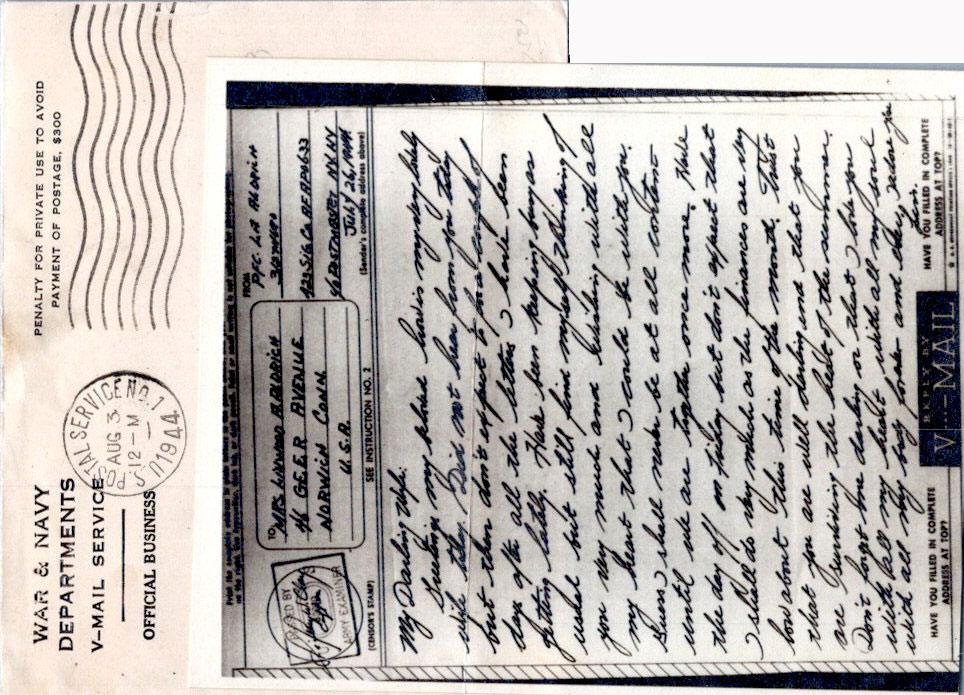 WAR & NAVY
DEPARTMENTS
V-MAIL SERVICE
OFFICIAL BUSINESS
U.S. POSTAL SERVICE NO. 1
AUG 3
12-M
1944
PENALTY FOR PRIVATE USE TO AVOID
PAYMENT OF POSTAGE, $300
PASSED BY
ARMY EXAMINER
(CENSOR'S STAMP)
TO
MRS LEONARD A ALDRICH
GEER AVENUE
NORWICH CONN.
U.S.A.
SEE INSTRUCTION NO. 2
FROM
PFC. L.A. ALDRICH
Sig Co. APO 633
% POSTMASTER NY. NY
JULY 26, 1944
(Sender's complete address above)
My Darling Wife:
Greetings my beloved how is my lovely
wife today. Did not hear from you today
but then don't expect to for a couple of
days after all the letters I have been
getting lately. Have been keeping busy as
usual but still find myself thinking of
you very much and wishing with all
my heart that I could be with you.
Guess I shall never be at all content
until we are together once more. Have
the day off on Friday but don't expect that
I shall do very much as the finances are very
low about this time of the month. Trust
that you are well darling and that you
are enjoying the best of the summer.
Don't forget me darling or that I love you
with all my heart with all my soul
with all my body forever and ever, Adore you
Len.
HAVE YOU FILLED IN COMPLETE
ADDRESS AT TOP?
REPLY BY
V···-MAIL
HAVE YOU FILLED IN COMPLETE
ADDRESS AT TOP?